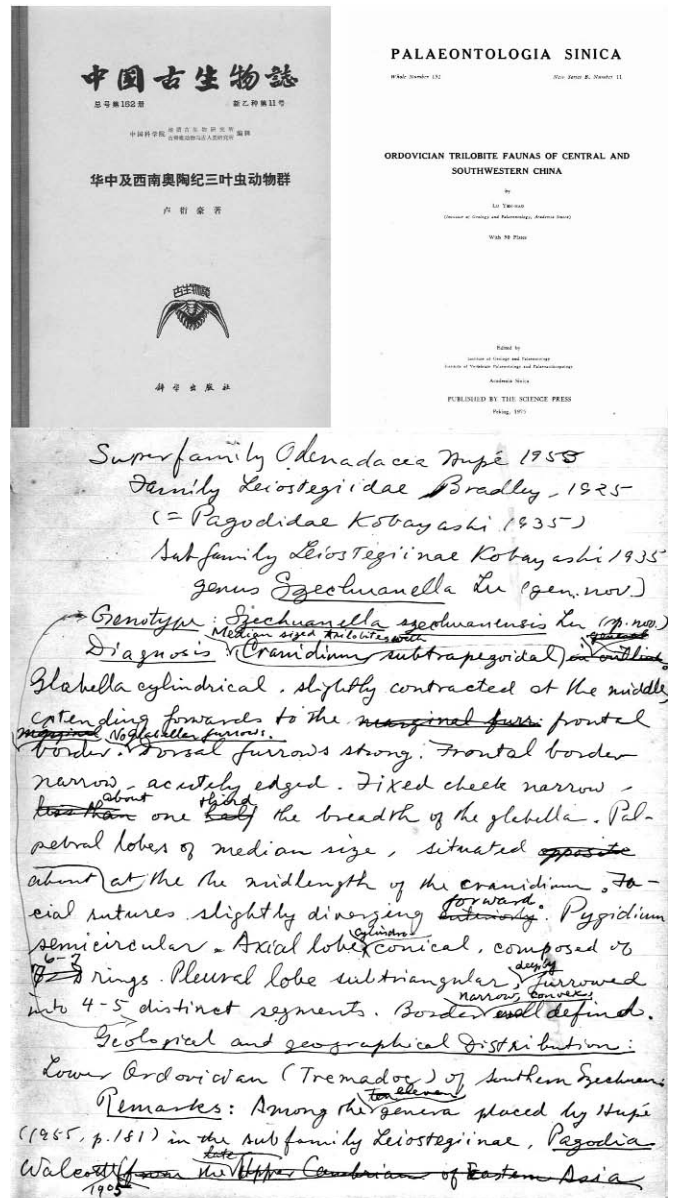 中国古生物誌
总号第152册 新乙种第11号
中国科学院 南京古生物研究所 古脊椎动物与古人类研究所 编辑
华中及西南奥陶纪三叶虫动物群
卢衍豪著
古生物誌
科学出版社
PALAEONTOLOGIA SINICA
Whole Number 152 New Series B, Number 11
ORDOVICIAN TRILOBITE FAUNAS OF CENTRAL AND
SOUTHWESTERN CHINA
by
Lu Yen-hao
(Institute of Geology and Palaeontology, Academia Sinica)
With 50 Plates
Edited by
Institute of Geology and Palaeontology
Institute of Vertebrate Palaeontology and Palaeoanthropology
Academia Sinica
PUBLISHED BY THE SCIENCE PRESS
Peking, 1975
Superfamily Odenadacea Hupé 1955
Family Leiostegiidae Bradley, 1925
(= Pagodidae Kobayashi 1935)
Subfamily Leiostegiinae Kobayashi 1935
genus Szechuanella Lu (gen. nov.)
Genotype: Szechuanella szechuanensis Lu (sp. nov.)
Median sized trilobites with
Diagnosis Cranidium subtrapezoidal in outline.
Glabella cylindrical, slightly contracted at the middle,
extending forwards to the marginal furr. frontal
marginal No glabellar furrows.
border. Dorsal furrows strong. Frontal border
narrow, acutely edged. Fixed cheek narrow,
about third
less than one half the breadth of the glabella. Pal-
pebral lobes of median size, situated opposite
about at the the midlength of the cranidium. Fa-
forward.
cial sutures slightly diverging anteriorly. Pygidium
cylindro-
semicircular. Axial lobe conical, composed of
6-7
rings. Pleural lobe subtriangular, deeply furrowed
narrow, convex,
into 4-5 distinct segments. Border well defined.
Geological and geographical Distribution:
Lower Ordovician (Tremadoc) of southern Szechuan.
ten eleven
Remarks: Among the genera placed by Hupé
(1955, p.181) in the subfamily Leiostegiinae, Pagodia
late
Walcott from the Upper Cambrian of Eastern Asia
1905